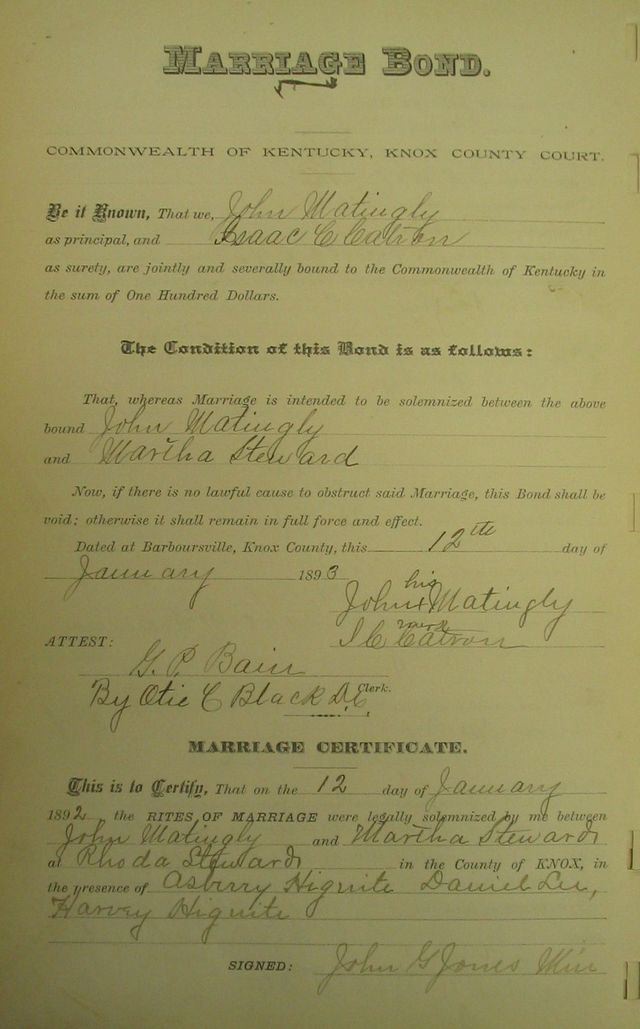 MARRIAGE BOND.
COMMONWEALTH OF KENTUCKY, KNOX COUNTY COURT.
Be it Known, That we, John Matingly
as principal, and Isaac C Catron
as surety, are jointly and severally bound to the Commonwealth of Kentucky in
the sum of One Hundred Dollars.
The Condition of this Bond is as follows:
That, whereas Marriage is intended to be solemnized between the above
bound John Matingly
and Martha Steward
Now, if there is no lawful cause to obstruct said Marriage, this Bond shall be
void; otherwise it shall remain in full force and effect.
Dated at Barboursville, Knox County, this 12th day of
January 1893
his
John x Matingly
mark
ATTEST: I C Catron
G. P. Bain
By Otie C Black D.C. Clerk.
MARRIAGE CERTIFICATE.
This is to Certify, That on the 12 day of January
1892 the RITES OF MARRIAGE were legally solemnized by me between
John Matingly and Martha Stewards
at Rhoda Stewards in the County of KNOX, in
the presence of Asberry Hignite Daniel Lee,
Harvey Hignite
SIGNED: John G Jones Min